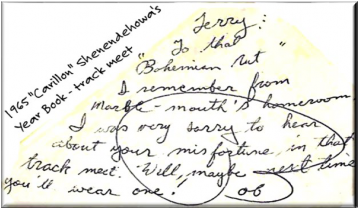 1965 "Carillon" Shenendehowa's
Year Book - track meet
Jerry:
"To that
"Bohemian Nut"
I remember from
Marble-mouth's homeroom
I was very sorry to hear
about your misfortune, in that
track meet. Well, maybe next time
you'll wear one!